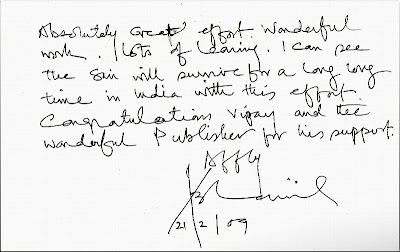 Absolutely Great effort. Wonderful
work. Lots of learning. I can see
the Sun will survive for a long long
time in India with this effort.
Congratulations Vijay and the
wonderful Publisher for his support.
Affly
21/2/09